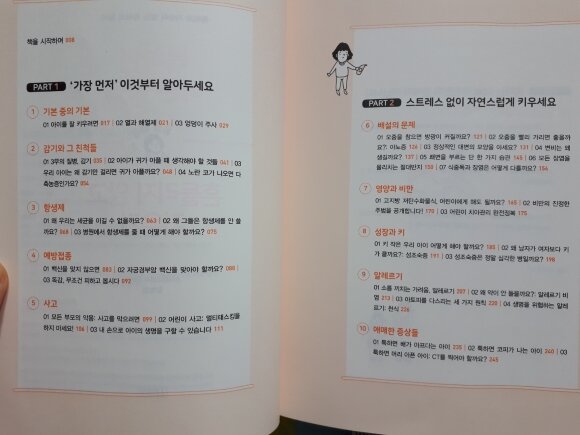 책을 시작하며 008
PART 1 '가장 먼저' 이것부터 알아두세요
1 기본 중의 기본
01 아이를 잘 키우려면 017 | 02 열과 해열제 021 | 03 엉덩이 주사 029
2 감기와 그 친척들
01 3무의 질병, 감기 035 | 02 아이가 귀가 아플 때 생각해야 할 것들 041 | 03
우리 아이는 왜 감기만 걸리면 귀가 아플까요? 048 | 04 노란 코가 나오면 다
축농증인가요? 054
3 항생제
01 왜 우리는 세균을 이길 수 없을까요? 063 | 02 왜 그들은 항생제를 안 쓸
까요? 068 | 03 병원에서 항생제를 줄 때 어떻게 해야 할까요? 075
4 예방접종
01 백신을 맞지 않으면 083 | 02 자궁경부암 백신을 맞아야 할까요? 088 |
03 독감, 무조건 피하고 봅시다 092
5 사고
01 모든 부모의 악몽: 사고를 막으려면 099 | 02 어린이 사고: 멀티태스킹을
하지 마세요! 106 | 03 내 손으로 아이의 생명을 구할 수 있습니다 111
PART 2 스트레스 없이 자연스럽게 키우세요
6 배설의 문제
01 오줌을 참으면 방광이 커질까요? 121 | 02 오줌을 빨리 가리면 좋을까
요?: 야뇨증 126 | 03 정상적인 대변의 모양을 아세요? 131 | 04 변비는 왜
생길까요? 137 | 05 쾌변을 부르는 단 한 가지 습관 145 | 06 모든 장염을
물리치는 절대반지 150 | 07 식중독과 장염은 어떻게 다를까요? 156
7 영양과 비만
01 고지방 저탄수화물식, 어린이에게 해도 될까요? 165 | 02 비만의 진정한
주범을 공개합니다! 170 | 03 어린이 치아관리 완전정복 175
8 성장과 키
01 키 작은 우리 아이 어떻게 해야 할까요? 185 | 02 왜 남자가 여자보다 키
가 클까요?: 성조숙증 191 | 03 성조숙증은 정말 심각한 병일까요? 198
9 알레르기
01 소름 끼치는 가려움, 알레르기 207 | 02 왜 약이 안 들을까요?: 알레르기 비
염 213 | 03 아토피를 다스리는 세 가지 원칙 220 | 04 생명을 위협하는 알레
르기: 천식 226
10 애매한 증상들
01 툭하면 배가 아프다는 아이 235 | 02 툭하면 코피가 나는 아이 240 | 03
툭하면 머리 아픈 아이: CT를 찍어야 할까요? 245